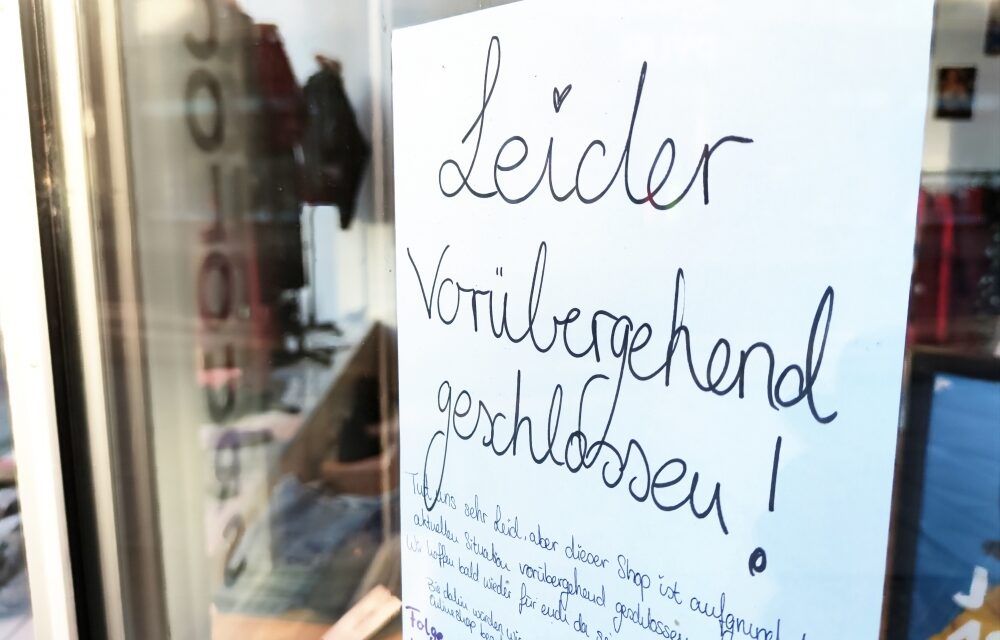 Leider
Vorübergehend
geschlossen!
Tut uns sehr Leid, aber dieser Shop ist aufgrund
aktuellen Situation vorübergehend geschlossen
Wir hoffen bald wieder für euch da
Bis dahin würden wir
Onlineshop
Folge